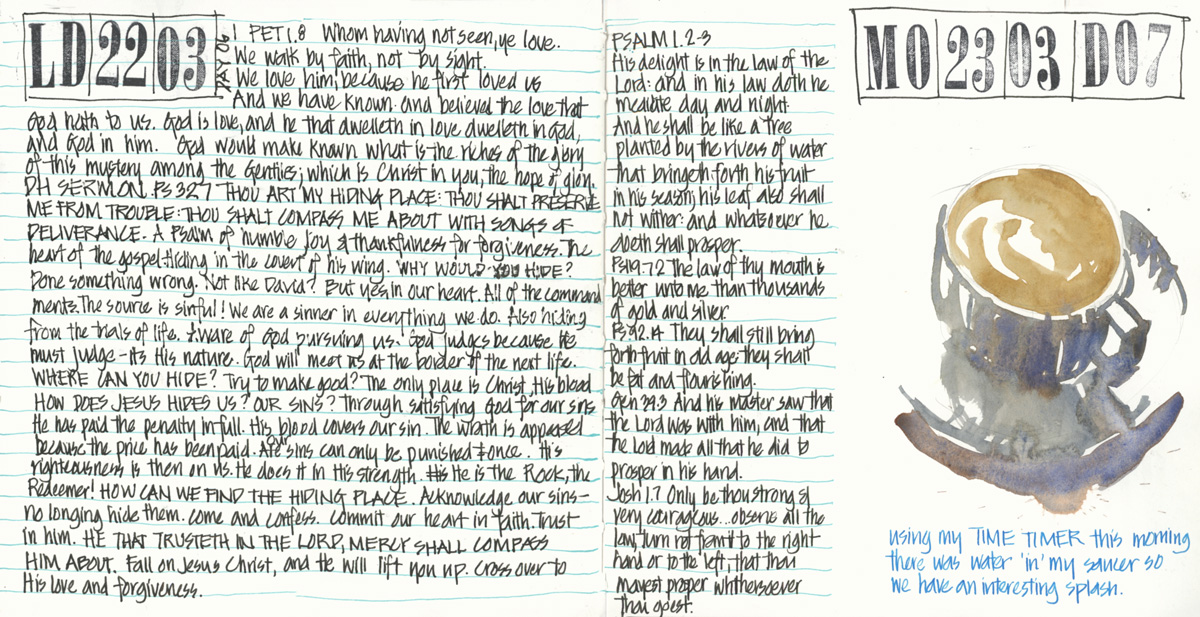 LD 22 03
DAY 06
1 PET 1.8 Whom having not seen, ye love.
We walk by faith, not by sight.
We love him, because he first loved us
And we have known and believed the love that
God hath to us. God is love, and he that dwelleth in love dwelleth in God,
and God in him. God would make known what is the riches of the glory
of this mystery among the Gentiles; which is Christ in you, the hope of glory.
DH SERMON. PS 32.7 THOU ART MY HIDING PLACE: THOU SHALT PRESERVE
ME FROM TROUBLE: THOU SHALT COMPASS ME ABOUT WITH SONGS OF
DELIVERANCE. A Psalm of humble joy & thankfulness for forgiveness. The
heart of the gospel-Hiding in the covert of his wing. WHY WOULD YOU HIDE?
Done something wrong. Not like David? But yes, in our heart. All of the command
ments. The source is sinful! We are a sinner in everything we do. Also hiding
from the trials of life. Aware of God pursuing us. God judges because He
must judge - its His nature. God will meet us at the border of the next life.
WHERE CAN YOU HIDE? Try to make good? The only place is Christ, His blood
HOW DOES JESUS HIDES US? OUR SINS? Through satisfying God for our sins
He has paid the penalty in full. His blood covers our sin. The wrath is appeased
because the price has been paid. Are our sins can only be punished once. His
righteousness is then on us. He does it in His strength. He is the Rock, the
Redeemer! HOW CAN WE FIND THE HIDING PLACE. Acknowledge our sins -
no longing hide them. Come and confess. Commit our heart in faith. Trust
in him. HE THAT TRUSTETH IN THE LORD, MERCY SHALL COMPASS
HIM ABOUT. Fall on Jesus Christ, and He will lift you up. Cross over to
His love and forgiveness.
PSALM 1.2-3
His delight is in the law of the
Lord: and in his law doth he
mediate day and night
And he shall be like a tree
planted by the rivers of water
that bringeth forth his fruit
in his season; his leaf also shall
not wither: and whatsoever he
doeth shall prosper.
PS 119.72 The law of thy mouth is
better unto me than thousands
of gold and silver
PS 92.14 They shall still bring
forth fruit in old age: they shall
be fat and flourishing.
Gen 39.3 And his master saw that
the Lord was with him, and that
the Lord made all that he did to
prosper in his hand.
Josh 1.7 Only be thou strong &
very courageous... observe all the
law, turn not from it to the right
hand or to the left, that thou
mayest proper whithersoever
thou goest.
MO 23 03 D07
using my TIME TIMER this morning
there was water 'in' my saucer so
we have an interesting splash.